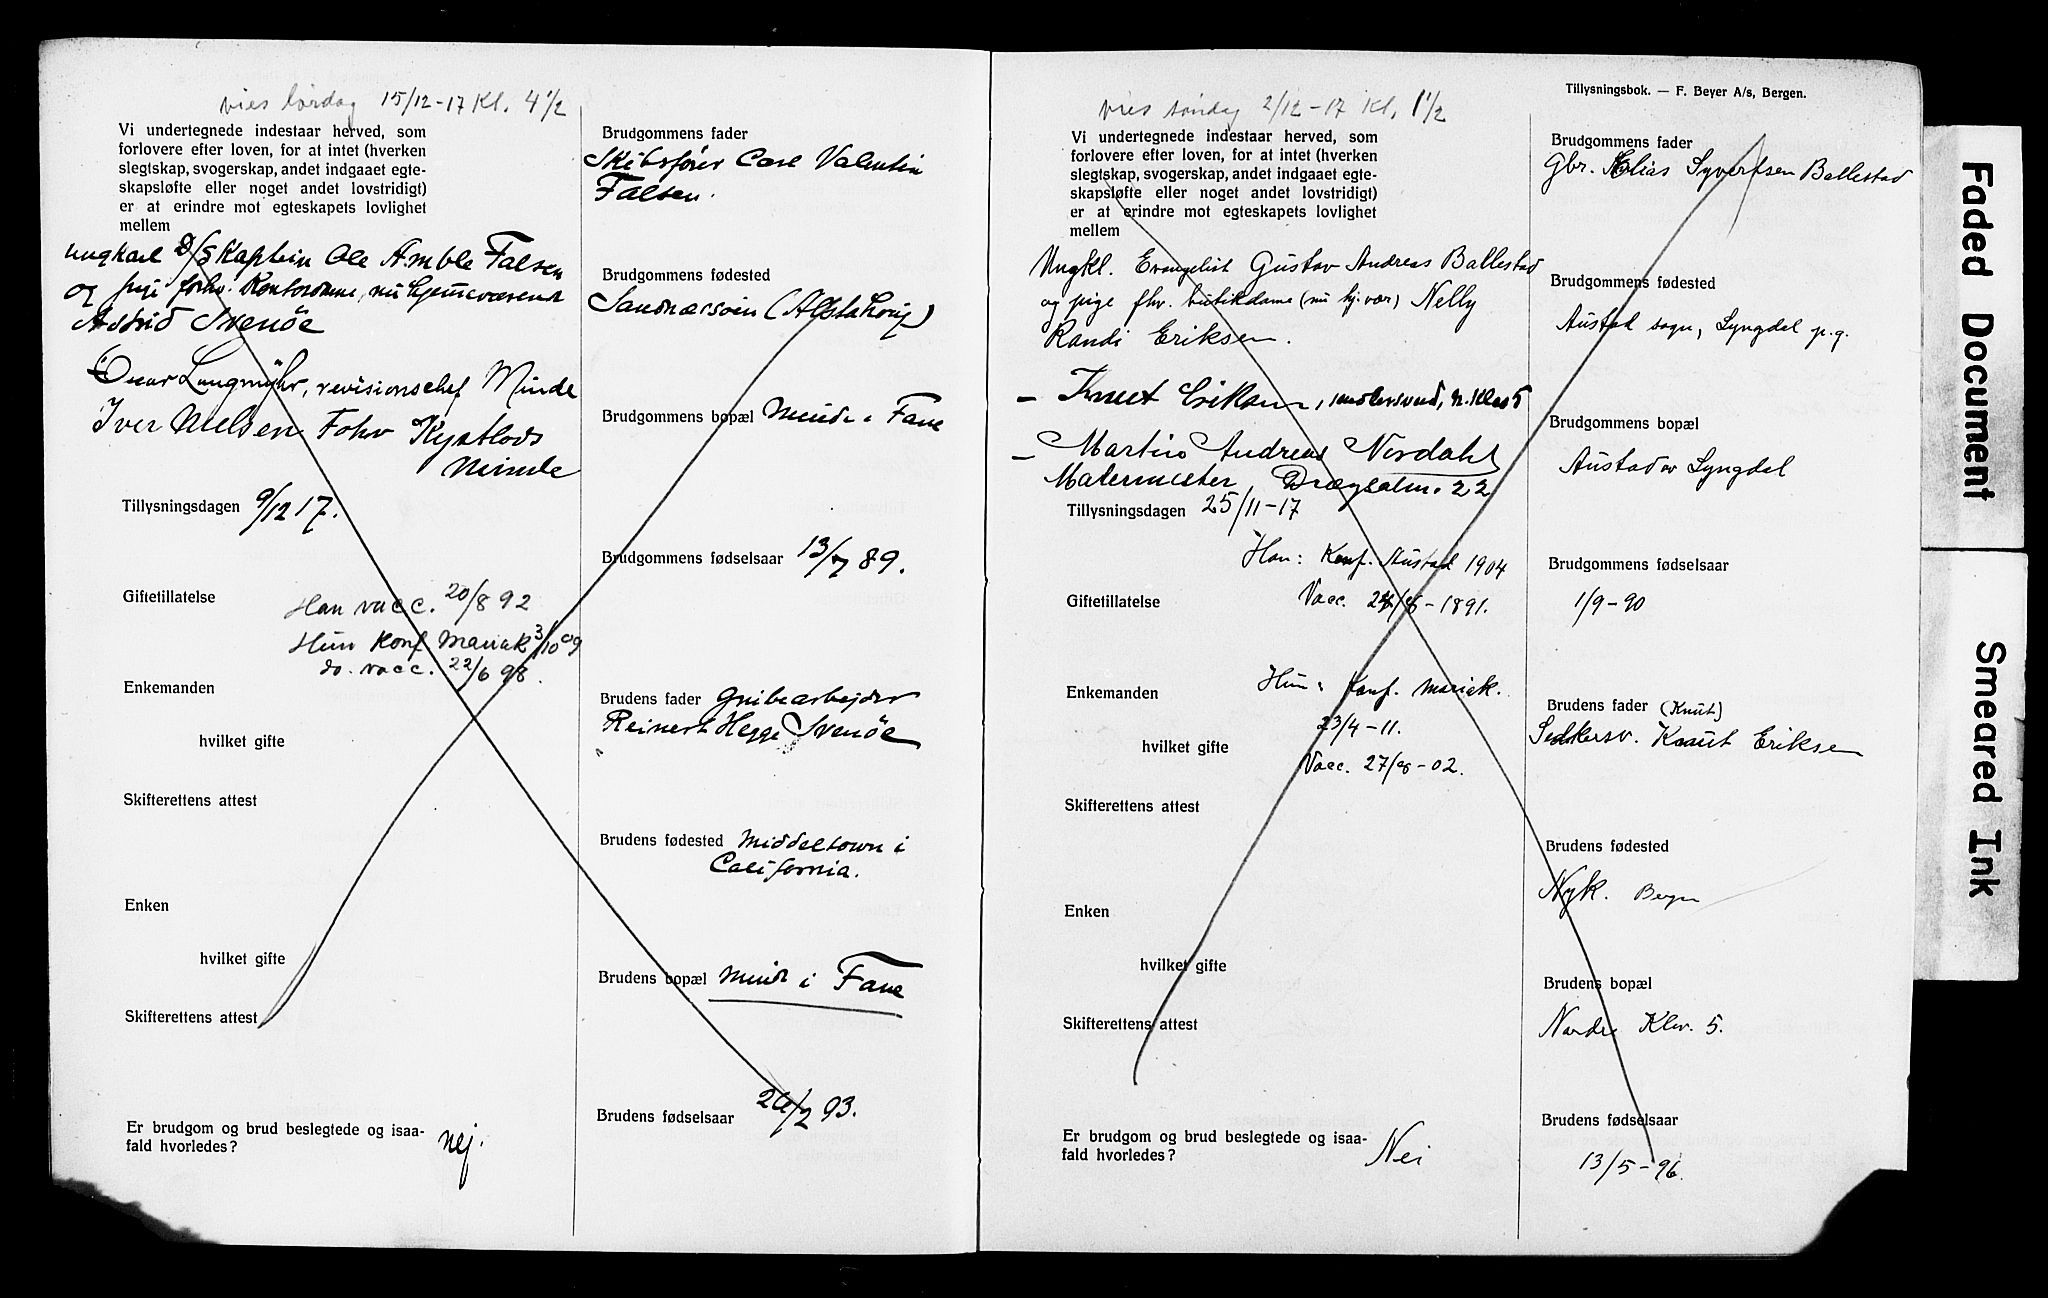 vies lørdag 15/12-17 Kl. 4 1/2
Vi undertegnede indestaar herved, som
forlovere efter loven, for at intet (hverken
slegtskap, svogerskap, andet indgaaet egte-
skapsløfte eller noget andet lovstridigt)
er at erindre mot egteskapets lovlighet
mellem
ungkarl D/S Kaptein Ole Amble Falsen
og pige forhv. Kontordame, nu hjemmeværende
Astrid Svenöe
Oscar Langmyhr, revisionschef Minde
Iver Nielsen Fohv Kystlods
Minde
Tillysningsdagen 9/12 17.
Giftetillatelse
Han vacc. 20/8 92
Hun Konf Mariak 3/10 09
do. vacc. 22/6 98.
Enkemanden
hvilket gifte
Skifterettens attest
Enken
hvilket gifte
Skifterettens attest
Er brudgom og brud beslegtede og isaa-
fald hvorledes? nej.
Brudgommens fader
Skibsfører Carl Valentin
Falsen.
Brudgommens fødested
Sandnæssøen (Alstahoug)
Brudgommens bopæl Minde i Fane
Brudgommens fødselsaar 13/7 89.
Brudens fader Grubearbejder
Reinert Hegge Svenöe
Brudens fødested Middeltown i
California.
Brudens bopæl Minde i Fane
Brudens fødselsaar 26/2 93.
Tillysningsbok. — F. Beyer A/s, Bergen.
vies søndag 2/12-17 Kl. 1 1/2
Vi undertegnede indestaar herved, som
forlovere efter loven, for at intet (hverken
slegtskap, svogerskap, andet indgaaet egte-
skapsløfte eller noget andet lovstridigt)
er at erindre mot egteskapets lovlighet
mellem
Ungkl. Evangelist Gustav Andreas Ballestad
og pige fhv. butikdame (nu hj.vær) Nelly
Randi Eriksen.
- Knut Eriksen, N. Klev 5
- Martin Andreas Nordahl
Malermester Drægsalm. 22
Tillysningsdagen 25/11-17
Han: Konf. Austad 1904
Giftetillatelse Vacc. -1891.
Enkemanden Hun: Konf. Mariek.
23/4-11.
hvilket gifte
Vacc. 27/8-02.
Skifterettens attest
Enken
hvilket gifte
Skifterettens attest
Er brudgom og brud beslegtede og isaa-
fald hvorledes? Nei
Brudgommens fader
Gbr. Elias Syvertsen Ballestad
Brudgommens fødested
Austad sogn, Lyngdal p.g.
Brudgommens bopæl
Austad av Lyngdal
Brudgommens fødselsaar
1/9-90
Brudens fader (Knut)
Knut Eriksen
Brudens fødested
Nyk. Bergen
Brudens bopæl
Nordre Klev. 5.
Brudens fødselsaar
13/5-96.
Faded Document
Smeared Ink